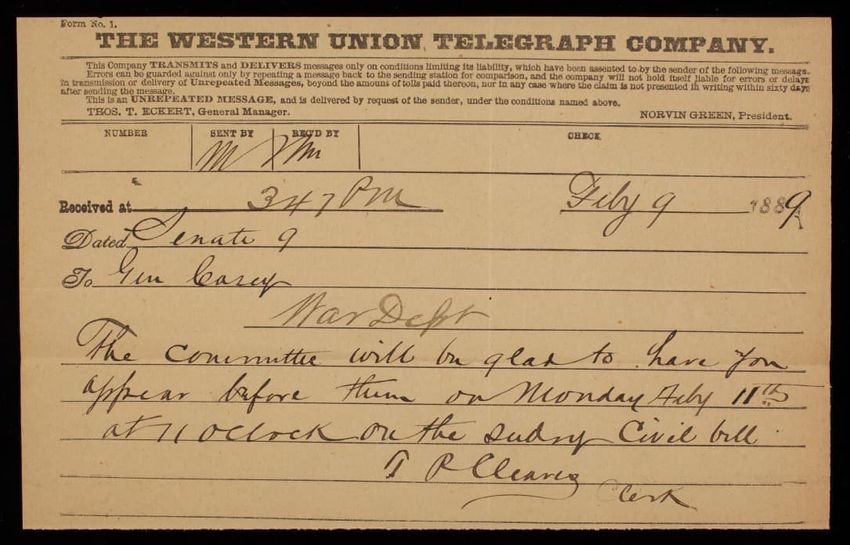 Form No. 1.
THE WESTERN UNION TELEGRAPH COMPANY.
This Company TRANSMITS and DELIVERS messages only on conditions limiting its liability, which have been assented to by the sender of the following message.
Errors can be guarded against only by repeating a message back to the sending station for comparison, and the company will not hold itself liable for errors or delays
in transmission or delivery of Unrepeated Messages, beyond the amount of tolls paid thereon, nor in any case where the claim is not presented in writing within sixty days
after sending the message.
This is an UNREPEATED MESSAGE, and is delivered by request of the sender, under the conditions named above.
THOS. T. ECKERT, General Manager. NORVIN GREEN, President.
NUMBER SENT BY REC'D BY CHECK
M
Received at 347 PM Feby 9 1889
Dated Senate 9
To Gen Casey
War Dept
The committee will be glad to have you
appear before them on Monday Feby 11th
at 11 oclock on the sudry Civil bill
T P Cleaves
Clerk